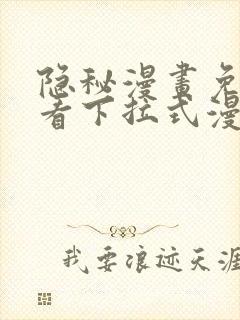 隐秘漫畫免
看下拉式漫
我要浪迹天涯